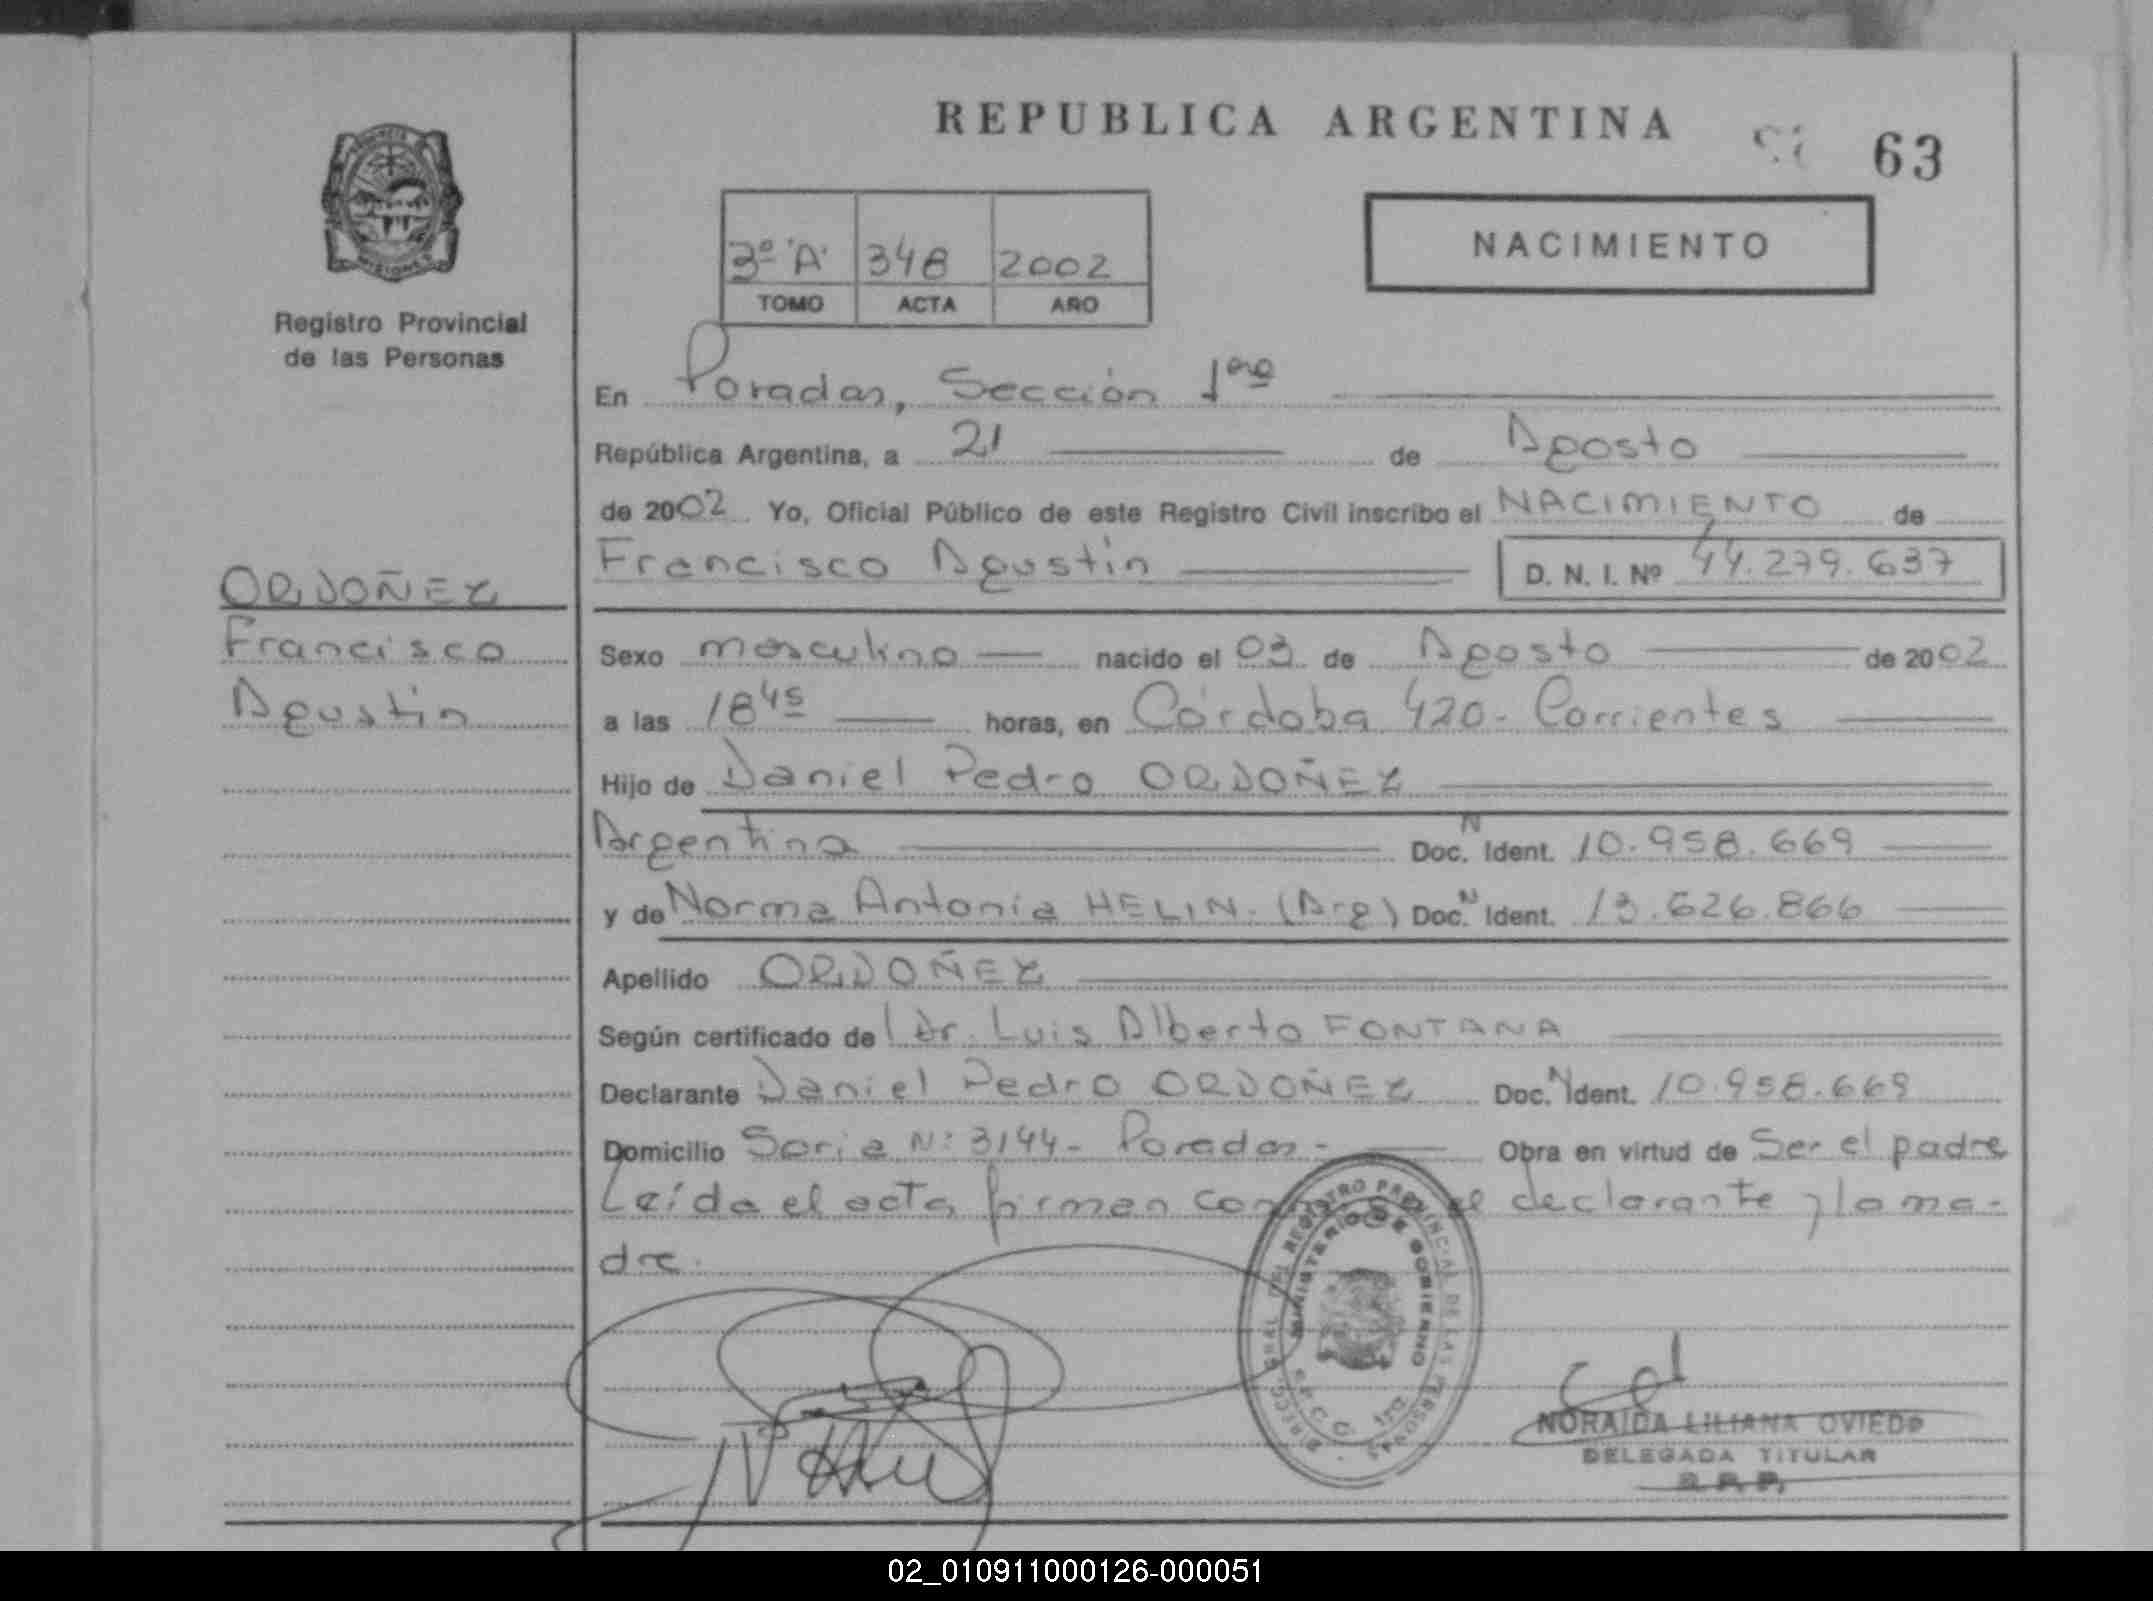 REPUBLICA ARGENTINA
63
NACIMIENTO
3º "A" 348 2002
TOMO ACTA AÑO
PROVINCIA
MISIONES
Registro Provincial
de las Personas
En Posadas, Sección 1era
República Argentina, a 21 de Agosto
de 2002 Yo, Oficial Público de este Registro Civil inscribo el NACIMIENTO de
Francisco Agustín D. N. I. Nº 44.279.637
ORDOÑEZ
Francisco
Agustín
Sexo masculino nacido el 03 de Agosto de 2002
a las 18 45 horas, en Córdoba 420 - Corrientes
Hijo de Daniel Pedro ORDOÑEZ
Argentina Doc. N Ident. 10.958.669
y de Norma Antonia HELIN. (Arg) Doc. N Ident. 13.626.866
Apellido ORDOÑEZ
Según certificado del Dr. Luis Alberto FONTANA
Declarante Daniel Pedro ORDOÑEZ Doc. N Ident. 10.958.669
Domicilio Soria Nº 3144 - Posadas - Obra en virtud de Ser el padre
Leída el acta firman conmigo el declarante y la ma-
dre.
DIRECC. GRAL. DEL REGISTRO PROVINCIAL DE LAS PERSONAS
MINISTERIO DE GOBIERNO
NORAIDA LILIANA OVIEDO
DELEGADA TITULAR
R. P. P.
02_010911000126-000051